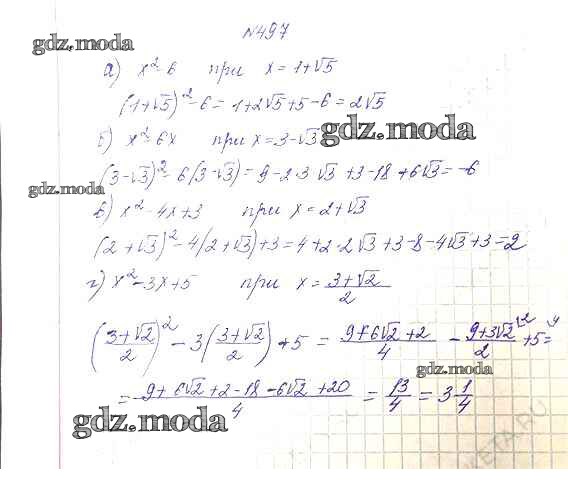 №497
gdz.moda
а) x²-6 при x = 1+√5
(1+√5)²-6 = 1+2√5+5-6 = 2√5
б) x²-6x при x = 3-√3
gdz.moda
(3-√3)²-6(3-√3) = 9-2·3√3+3-18+6√3 = -6
gdz.moda
в) x²-4x+3 при x = 2+√3
(2+√3)²-4(2+√3)+3 = 4+2·2√3+3-8-4√3+3 = 2
г) x²-3x+5 при x = (3+√2)/2
((3+√2)/2)² - 3((3+√2)/2) + 5 = (9+6√2+2)/4 - (9+3√2)/2 + 5 =
gdz.moda
= (9+6√2+2-18-6√2+20)/4 = 13/4 = 3 1/4
gdz.moda